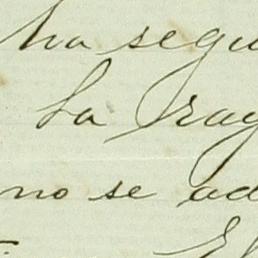 ha segu
La ray
no se ad
El